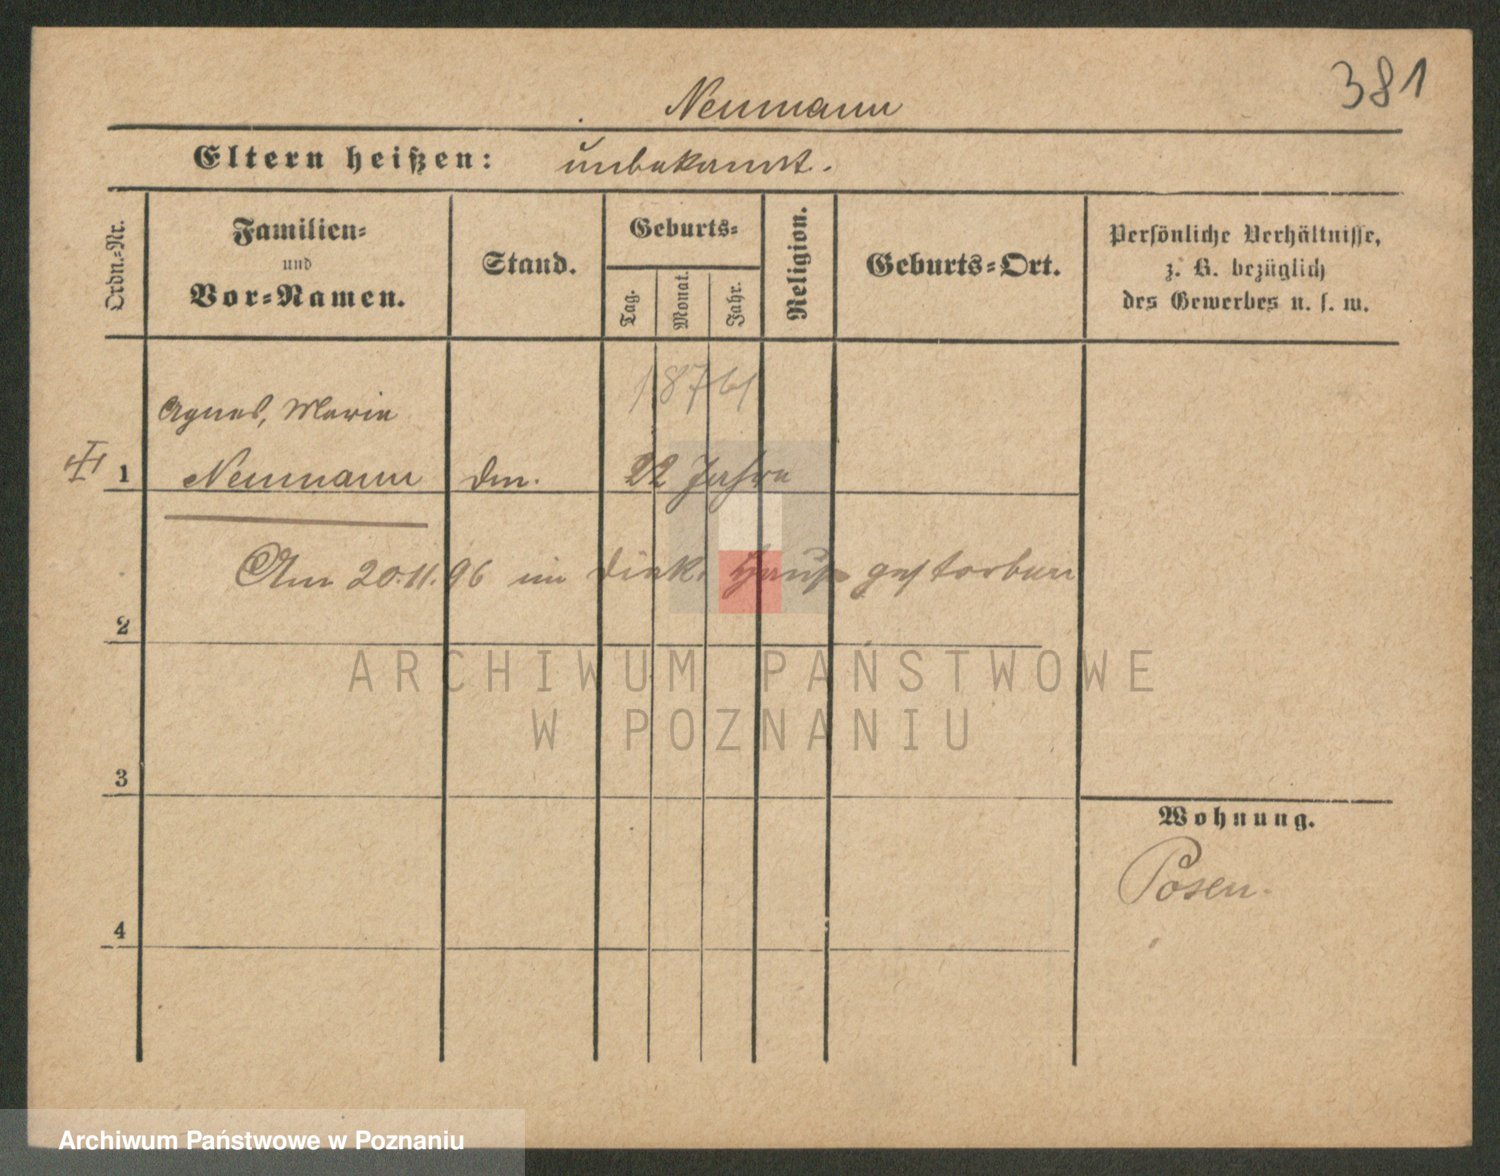 381
Neumann
Eltern heißen: unbekannt.
Ordn.-Nr.
Familien-
und
Vor-Namen.
Stand.
Geburts-
Tag.
Monat.
Jahr.
Religion.
Geburts-Ort.
Persönliche Verhältnisse,
z. B. bezüglich
des Gewerbes u. s. w.
1874
Agnes, Marie
1 Neumann 22 Jahre
Am 20.11.96 im Diak. Hause gestorben
2
ARCHIWUM PAŃSTWOWE
W POZNANIU
3
Wohnung.
Posen.
4
Archiwum Państwowe w Poznaniu